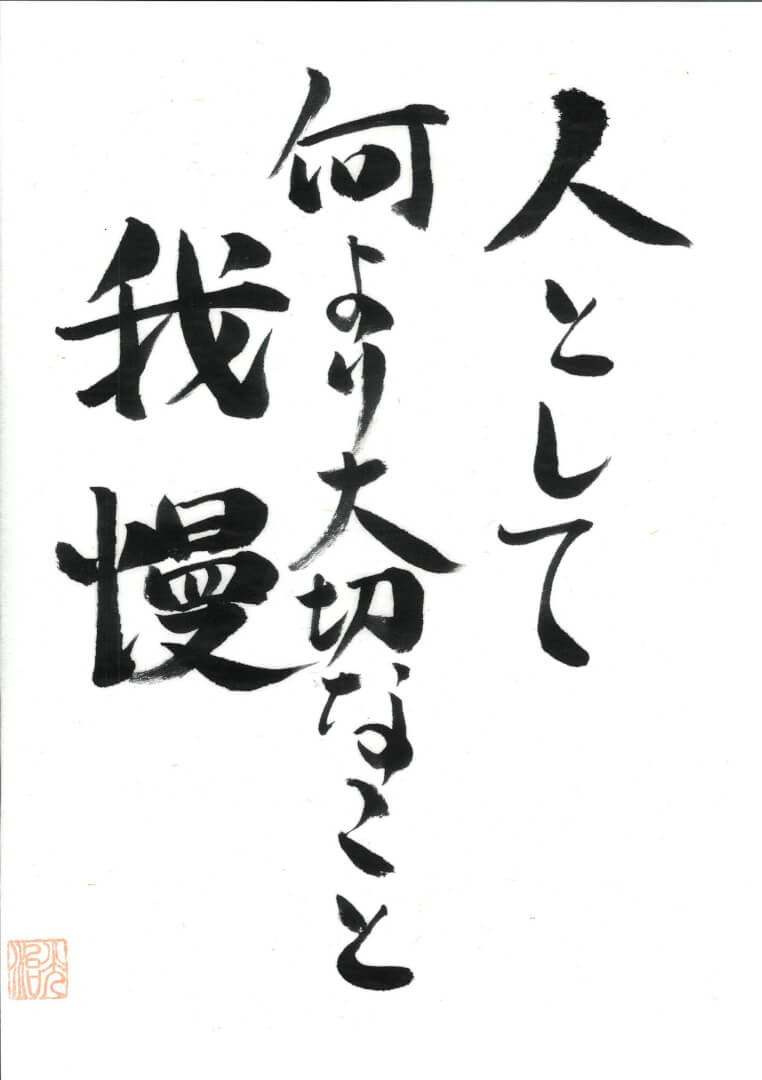 人として
何より大切なこと
我慢